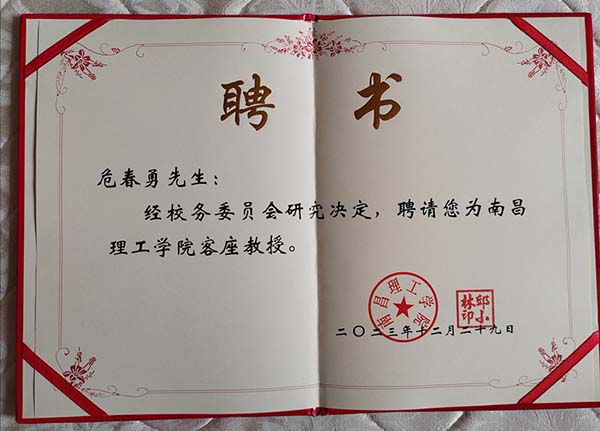 聘书
危春勇先生：
经校务委员会研究决定，聘请您为南昌
理工学院客座教授。
南昌理工学院
邱小
林印
二〇二三年十二月二十九日